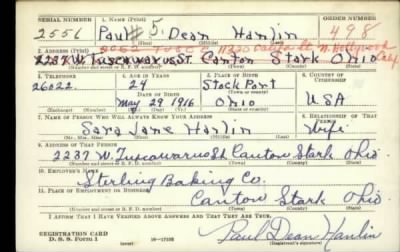 SERIAL NUMBER 1. NAME (Print) ORDER NUMBER
2556 Paul S. Dean Hanlin 498
2. ADDRESS (Print)
2237 W. Tuscawarus St. Canton Stark Ohio
3. TELEPHONE 4. AGE IN YEARS 5. PLACE OF BIRTH 6. COUNTRY OF CITIZENSHIP
26022 24 Stock Port
DATE OF BIRTH
May 29 1916 Ohio USA
7. NAME OF PERSON WHO WILL ALWAYS KNOW YOUR ADDRESS 8. RELATIONSHIP OF THAT PERSON
Sara Jane Hanlin Wife
9. ADDRESS OF THAT PERSON
2237 W. Tuscawarus St Canton Stark Ohio.
10. EMPLOYER'S NAME
Sterling Baking Co.
11. PLACE OF EMPLOYMENT OR BUSINESS
Canton Stark Ohio.
I AFFIRM THAT I HAVE VERIFIED ABOVE ANSWERS AND THAT THEY ARE TRUE.
REGISTRATION CARD
D. S. S. Form 1 16—17105 Paul Dean Hanlin
(Registrant's signature)